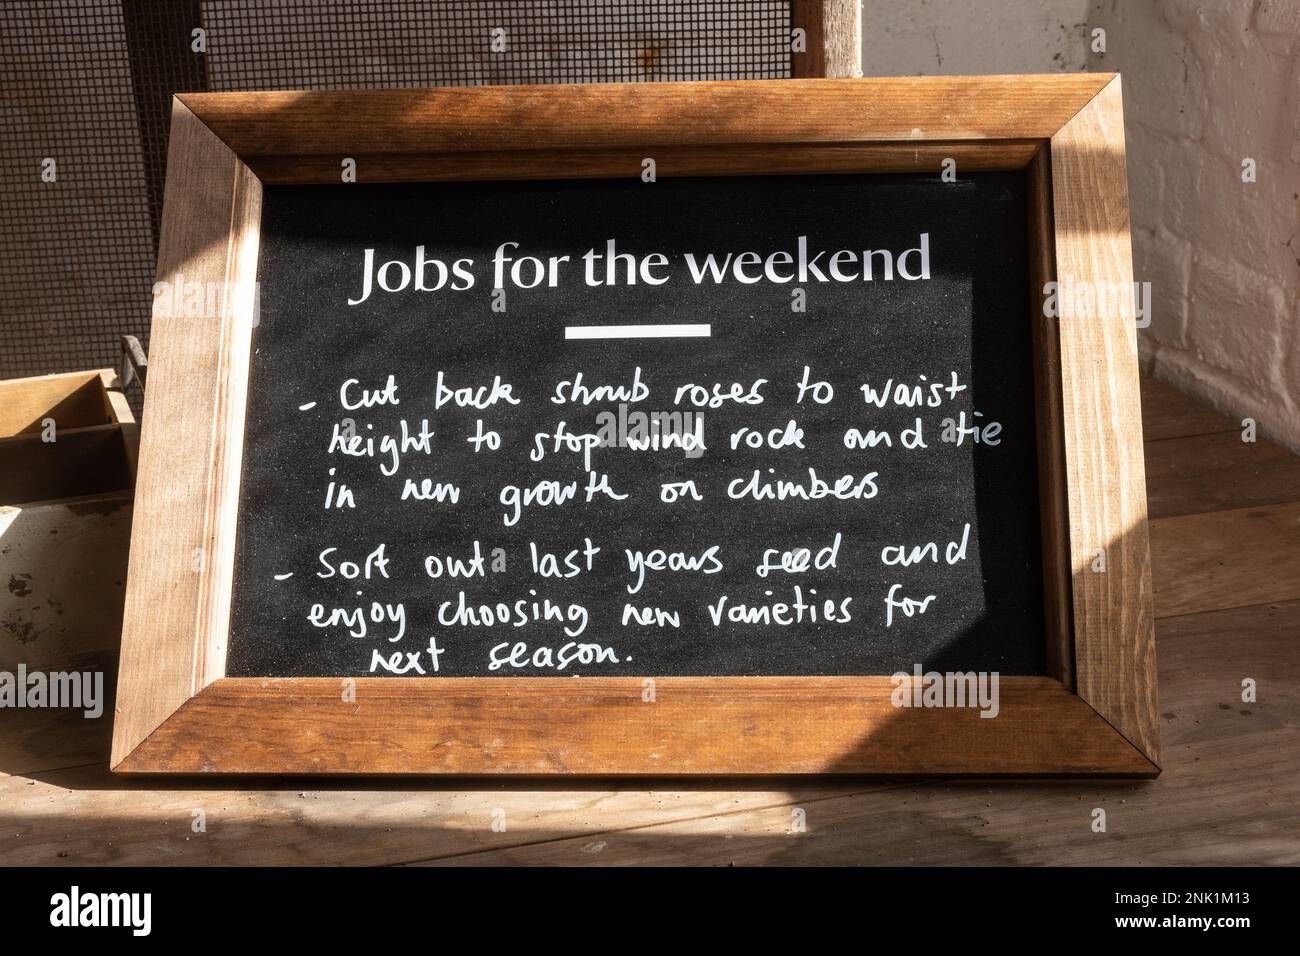 Jobs for the weekend
- Cut back shrub roses to waist
height to stop wind rock and tie
in new growth on climbers
- Sort out last years seed and
enjoy choosing new varieties for
next season.
alamy
Image ID: 2NK1M13
www.alamy.com